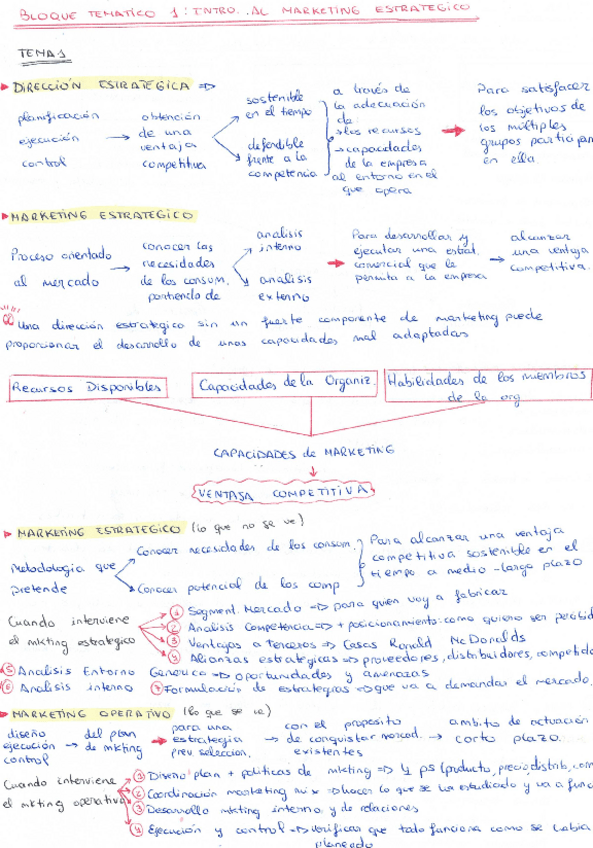 BLOQUE TEMATICO 1: INTRO. AL MARKETING ESTRATEGICO
TEMA 1
DIRECCIÓN ESTRATEGICA =>
planificación
ejecución
control
obtención
de una
ventaja
competitiva
sostenible
en el tiempo
defendible
frente a la
competencia
a través de
la adecuación
de:
→ los recursos
→ capacidades
de la empresa
al entorno en el
que opera
Para satisfacer
los objetivos de
los múltiples
grupos particip
en ella.
MARKETING ESTRATEGICO
Proceso orientado
al mercado
conocer las
necesidades
de los consum.
partiendo de
analisis
interno
analisis
externo
Para desarrollar y
ejecutar una estrat.
comercial que le
permita a la empresa
alcanzar
una ventaja
competitiva.
Una dirección estrategico sin un fuerte componente de marketing puede
proporcionar el desarrollo de unas capacidades mal adaptadas
Recursos Disponibles
Capacidades de la Organiz.
Habilidades de los miembros
de la org
CAPACIDADES de MARKETING
VENTAJA COMPETITIVA
MARKETING ESTRATEGICO (lo que no se ve)
Metodologia que
pretende
Conocer necesidades de los consum.
Conocer potencial de los comp
Para alcanzar una ventaja
competitiva sostenible en el
tiempo a medio-largo plazo
Cuando interviene
el mkting estrategico
1 Segment. Mercado => para quien voy a fabricar
2 Analisis Competencia => + posicionamiento: como quiero ser percibid
3 Ventajas a Terceros => Casas Ronald McDonalds
4 Alianzas estrategicas => proveedores, distribuidores, competido
5 Analisis Entorno Generico => oportunidades y amenazas
6 Analisis interno 7 Formulación de estrategias => que va a demandar el mercado.
MARKETING OPERATIVO (lo que se ve)
diseño
ejecución
control
del plan
de mkting
para una
estrategia
prev. seleccion.
con el proposito
de conquistar mercad.
existentes
ambito de actuación
corto plazo.
Cuando interviene
el mkting operativo
1 Diseño plan + politicas de mkting => 4 ps (producto, precio, distrib, com
2 Coordinación marketing mix => hacer lo que se ha estudiado y va a func
3 Desarrollo mkting interno y de relaciones
4 Ejecución y control => verificar que todo funciona como se habia
planeado